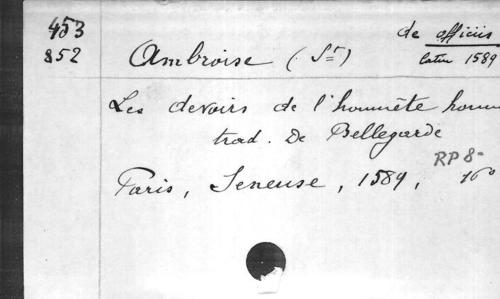 453
852
de officiis
latin 1589
Ambroise (St)
Les devoirs de l'honnête homm
trad. De Bellegarde
RP 8-
Paris, Seneuse, 1589, 16°